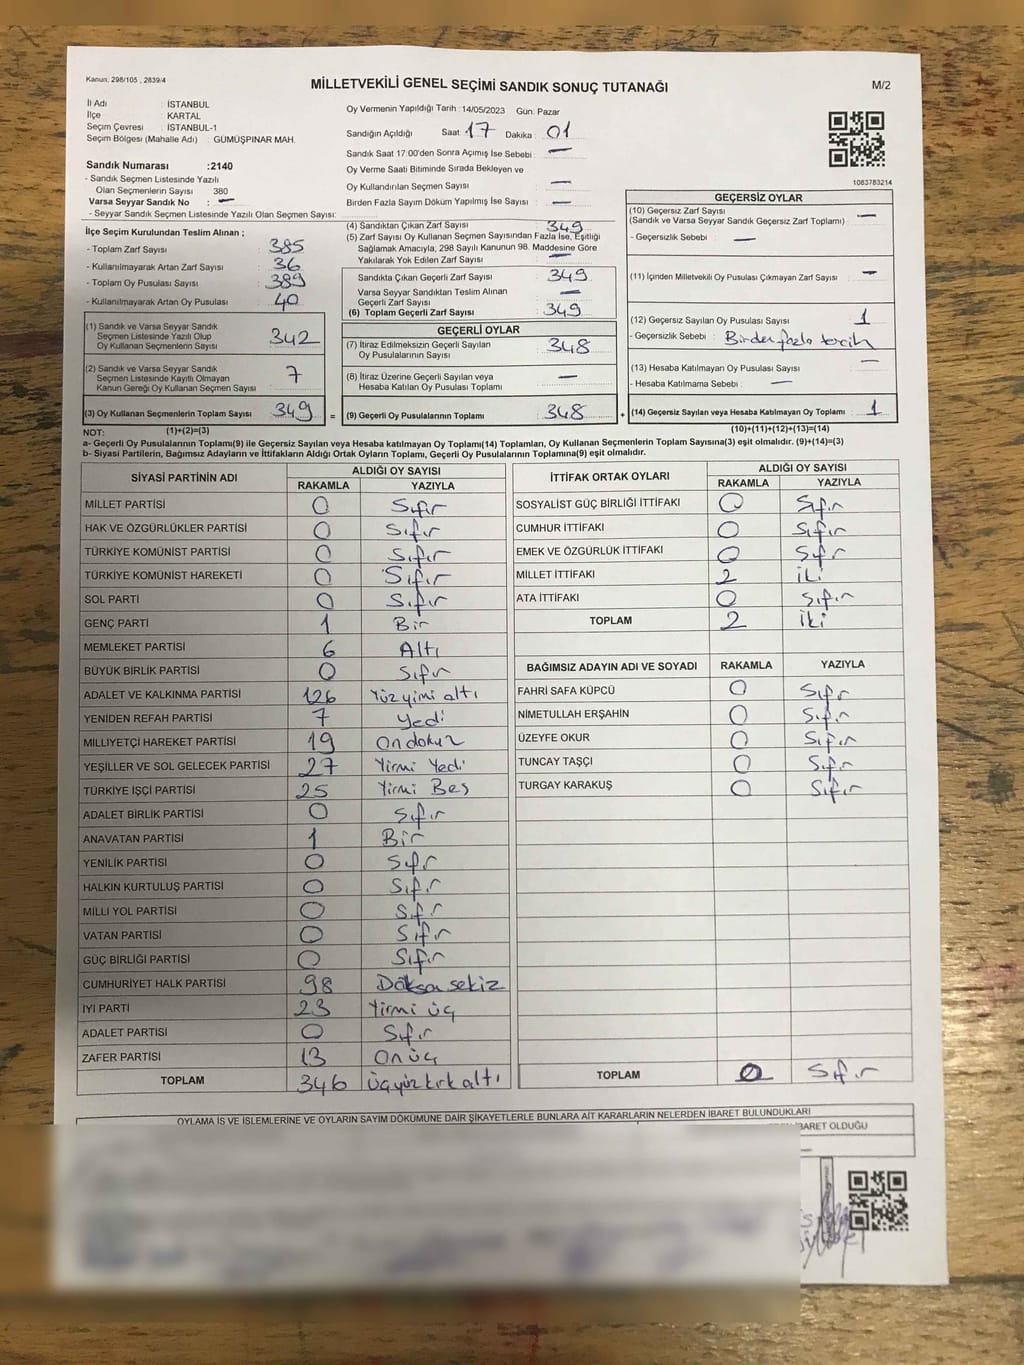 Kanun, 298/105 , 2839/4
MİLLETVEKİLİ GENEL SEÇİMİ SANDIK SONUÇ TUTANAĞI
M/2
İl Adı : İSTANBUL
İlçe : KARTAL
Seçim Çevresi : İSTANBUL-1
Seçim Bölgesi (Mahalle Adı) : GÜMÜŞPINAR MAH.
Sandık Numarası :2140
- Sandık Seçmen Listesinde Yazılı
Olan Seçmenlerin Sayısı 380
Varsa Seyyar Sandık No : —
- Seyyar Sandık Seçmen Listesinde Yazılı Olan Seçmen Sayısı:
Oy Vermenin Yapıldığı Tarih : 14/05/2023 Gün: Pazar
Sandığın Açıldığı Saat: 17 Dakika : 01
Sandık Saat 17:00'den Sonra Açımış İse Sebebi : —
Oy Verme Saati Bitiminde Sırada Bekleyen ve
Oy Kullandırılan Seçmen Sayısı : —
Birden Fazla Sayım Döküm Yapılmış İse Sayısı : —
1083783214
İlçe Seçim Kurulundan Teslim Alınan ;
- Toplam Zarf Sayısı : 385
- Kullanılmayarak Artan Zarf Sayısı : 36
- Toplam Oy Pusulası Sayısı : 389
- Kullanılmayarak Artan Oy Pusulası : 40
(1) Sandık ve Varsa Seyyar Sandık
Seçmen Listesinde Yazılı Olup
Oy Kullanan Seçmenlerin Sayısı : 342
(2) Sandık ve Varsa Seyyar Sandık
Seçmen Listesinde Kayıtlı Olmayan
Kanun Gereği Oy Kullanan Seçmen Sayısı : 7
(3) Oy Kullanan Seçmenlerin Toplam Sayısı : 349 =
(1)+(2)=(3)
(4) Sandıktan Çıkan Zarf Sayısı : 349
(5) Zarf Sayısı Oy Kullanan Seçmen Sayısından Fazla İse, Eşitliği
Sağlamak Amacıyla, 298 Sayılı Kanunun 98. Maddesine Göre
Yakılarak Yok Edilen Zarf Sayısı : —
Sandıkta Çıkan Geçerli Zarf Sayısı : 349
Varsa Seyyar Sandıktan Teslim Alınan
Geçerli Zarf Sayısı : —
(6) Toplam Geçerli Zarf Sayısı : 349
GEÇERLİ OYLAR
(7) İtiraz Edilmeksizin Geçerli Sayılan
Oy Pusulalarının Sayısı : 348
(8) İtiraz Üzerine Geçerli Sayılan veya : —
Hesaba Katılan Oy Pusulası Toplamı
(9) Geçerli Oy Pusulalarının Toplamı : 348 +
GEÇERSİZ OYLAR
(10) Geçersiz Zarf Sayısı
(Sandık ve Varsa Seyyar Sandık Geçersiz Zarf Toplamı) : —
- Geçersizlik Sebebi : —
(11) İçinden Milletvekili Oy Pusulası Çıkmayan Zarf Sayısı : —
(12) Geçersiz Sayılan Oy Pusulası Sayısı : 1
- Geçersizlik Sebebi : Birden fazla tercih
(13) Hesaba Katılmayan Oy Pusulası Sayısı : —
- Hesaba Katılmama Sebebi : —
(14) Geçersiz Sayılan veya Hesaba Katılmayan Oy Toplamı : 1
(10)+(11)+(12)+(13)=(14)
NOT:
a- Geçerli Oy Pusulalarının Toplamı(9) ile Geçersiz Sayılan veya Hesaba katılmayan Oy Toplamı(14) Toplamları, Oy Kullanan Seçmenlerin Toplam Sayısına(3) eşit olmalıdır. (9)+(14)=(3)
b- Siyasi Partilerin, Bağımsız Adayların ve İttifakların Aldığı Ortak Oyların Toplamı, Geçerli Oy Pusulalarının Toplamına(9) eşit olmalıdır.
SİYASİ PARTİNİN ADI ALDIĞI OY SAYISI
RAKAMLA YAZIYLA
MİLLET PARTİSİ 0 Sıfır
HAK VE ÖZGÜRLÜKLER PARTİSİ 0 Sıfır
TÜRKİYE KOMÜNİST PARTİSİ 0 Sıfır
TÜRKİYE KOMÜNİST HAREKETİ 0 Sıfır
SOL PARTİ 0 Sıfır
GENÇ PARTİ 1 Bir
MEMLEKET PARTİSİ 6 Altı
BÜYÜK BİRLİK PARTİSİ 0 Sıfır
ADALET VE KALKINMA PARTİSİ 126 Yüzyimi altı
YENİDEN REFAH PARTİSİ 7 Yedi
MİLLİYETÇİ HAREKET PARTİSİ 19 On dokuz
YEŞİLLER VE SOL GELECEK PARTİSİ 27 Yirmi Yedi
TÜRKİYE İŞÇİ PARTİSİ 25 Yirmi Beş
ADALET BİRLİK PARTİSİ 0 Sıfır
ANAVATAN PARTİSİ 1 Bir
YENİLİK PARTİSİ 0 Sıfır
HALKIN KURTULUŞ PARTİSİ 0 Sıfır
MİLLİ YOL PARTİSİ 0 Sıfır
VATAN PARTİSİ 0 Sıfır
GÜÇ BİRLİĞİ PARTİSİ 0 Sıfır
CUMHURİYET HALK PARTİSİ 98 Doksan sekiz
İYİ PARTİ 23 Yirmi üç
ADALET PARTİSİ 0 Sıfır
ZAFER PARTİSİ 13 On üç
TOPLAM 346 Üçyüz kırk altı
İTTİFAK ORTAK OYLARI ALDIĞI OY SAYISI
RAKAMLA YAZIYLA
SOSYALİST GÜÇ BİRLİĞİ İTTİFAKI 0 Sıfır
CUMHUR İTTİFAKI 0 Sıfır
EMEK VE ÖZGÜRLÜK İTTİFAKI 0 Sıfır
MİLLET İTTİFAKI 2 İki
ATA İTTİFAKI 0 Sıfır
TOPLAM 2 İki
BAĞIMSIZ ADAYIN ADI VE SOYADI RAKAMLA YAZIYLA
FAHRİ SAFA KÜPCÜ 0 Sıfır
NİMETULLAH ERŞAHİN 0 Sıfır
ÜZEYFE OKUR 0 Sıfır
TUNCAY TAŞÇI 0 Sıfır
TURGAY KARAKUŞ 0 Sıfır
TOPLAM 0 Sıfır
OYLAMA İŞ VE İŞLEMLERİNE VE OYLARIN SAYIM DÖKÜMÜNE DAİR ŞİKAYETLERLE BUNLARA AİT KARARLARIN NELERDEN İBARET BULUNDUKLARI
İBARET OLDUĞU